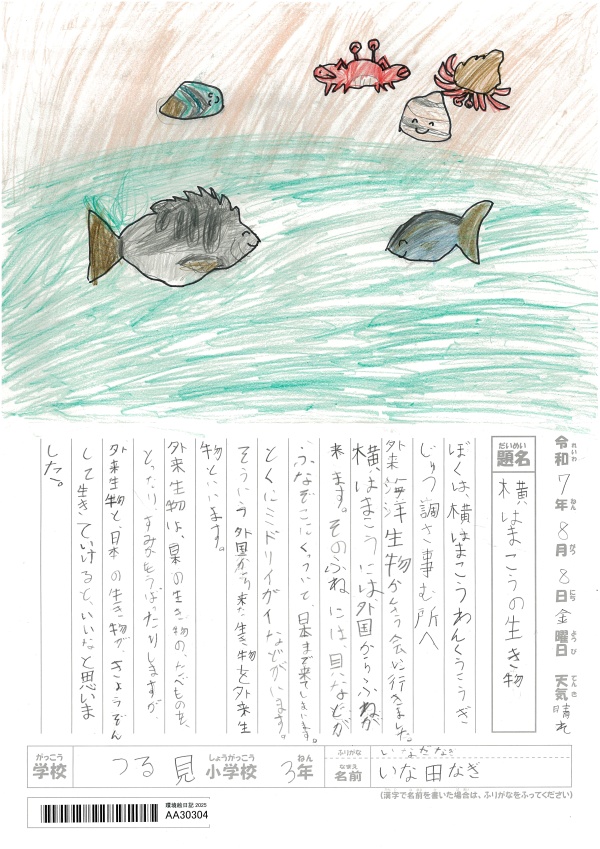 令和7年8月8日金曜日 天気晴れ
れいわ ねん がつ にち ようび てんき
だいめい
題名 横はまこうの生き物
ぼくは、横はまこうわんくうこうぎ
じゅつ調さ事む所へ
外来海洋生物かんさつ会に行きました。
横はまこうには、外国からふねが
来ます。そのふねには、貝などが
ふなぞこにくっついて、日本まで来てしまいます。
とくにミドリイガイなどがいます。
そういう外国から来た生き物を外来生
物といいます。
外来生物は、日本の生き物の、たべものを、
とったり、すみかをうばったりしますが、
外来生物と、日本の生き物が、きょうぞん
して生きていけると、いいなと思いま
した。
がっこう しょうがっこう ねん
学校 つる見小学校 3年
ふりがな いなだなぎ
なまえ
名前 いな田なぎ
(漢字で名前を書いた場合は、ふりがなをふってください)
環境絵日記2025
AA30304